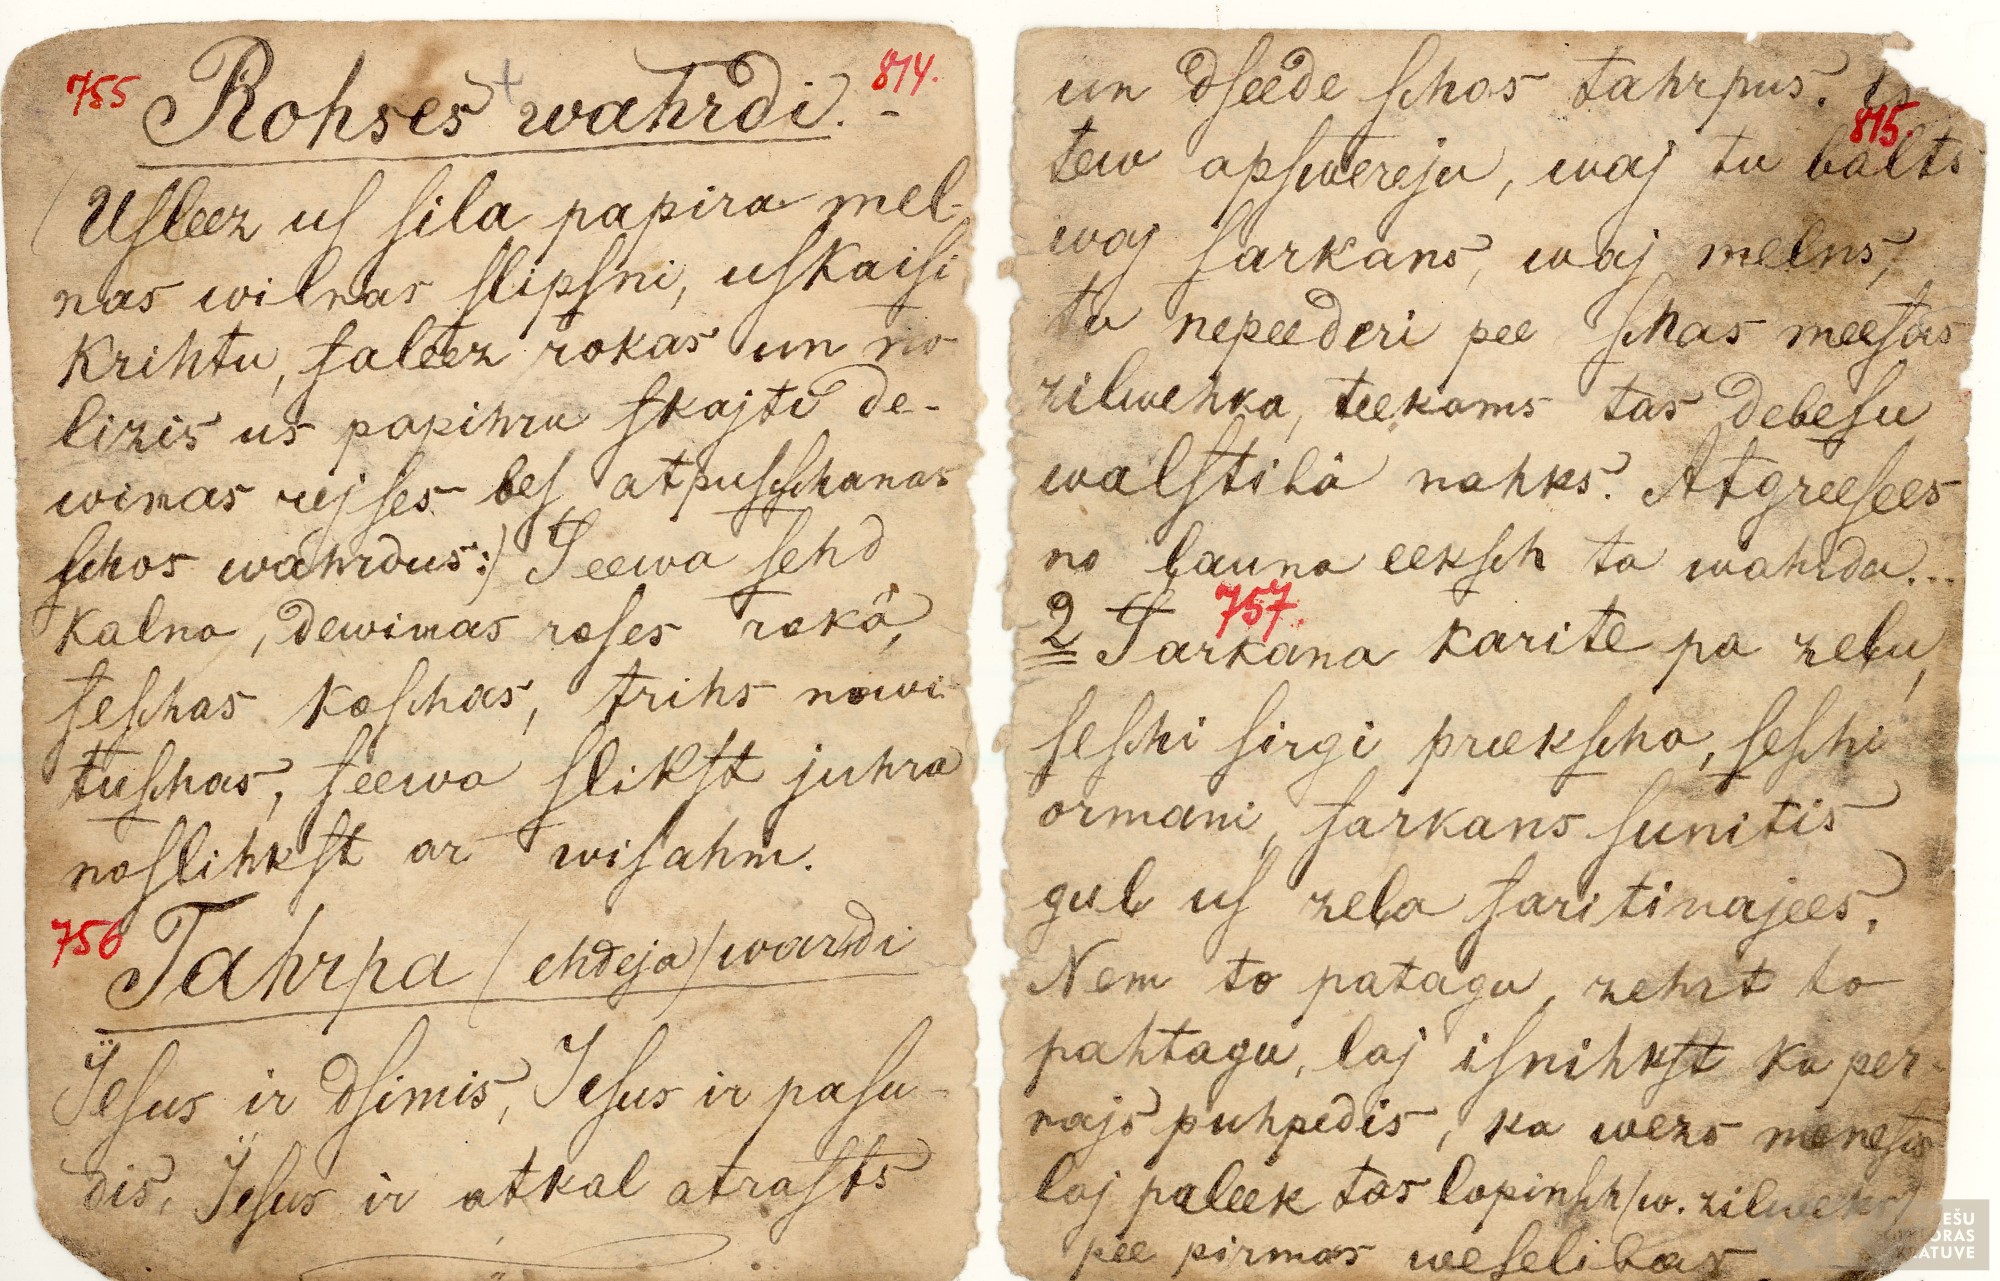 755 Rohses wahrdi. - 814.
(Usleez us sila papira mel-
nas wilnas slipsni, uskaisi
krihtu, saleez rokas un no
lizis us papihru skajti de-
winas rejses bes atpusschanas
schos wahrdus:) Seewa sehd
kalna, dewinas roses rokâ,
seschas koschas, trihs nowi
tuschas, seewa slikst juhra
noslihkst ar wisahm.
756 Tahrpa (ehdeja) wardi
Jesus ir dsimis, Jesus ir pasu-
dis, Jesus ir atkal atrasts
un dseede schos tahrpus. Es
815.
tew apswereju, waj tu balts
waj sarkans, waj melns,
tu nepeederi pee schas meesas
zilwehka, teekams tas debesu
walstibâ nahks. Atgreesees
no launa eeksch ta wahrda...
757.
2 Sarkana karite pa zelu,
seschi sirgi preekscho, seschi
ormani, sarkans sunitis
gul us zela saritinajees.
Nem to patagu, zehrt to
pahtagu, laj isnihkst ka per-
najs puhpedis, ka wezs menesis
laj paleek tas lopinsch (w. zilweks)
pee pirmas weselibas